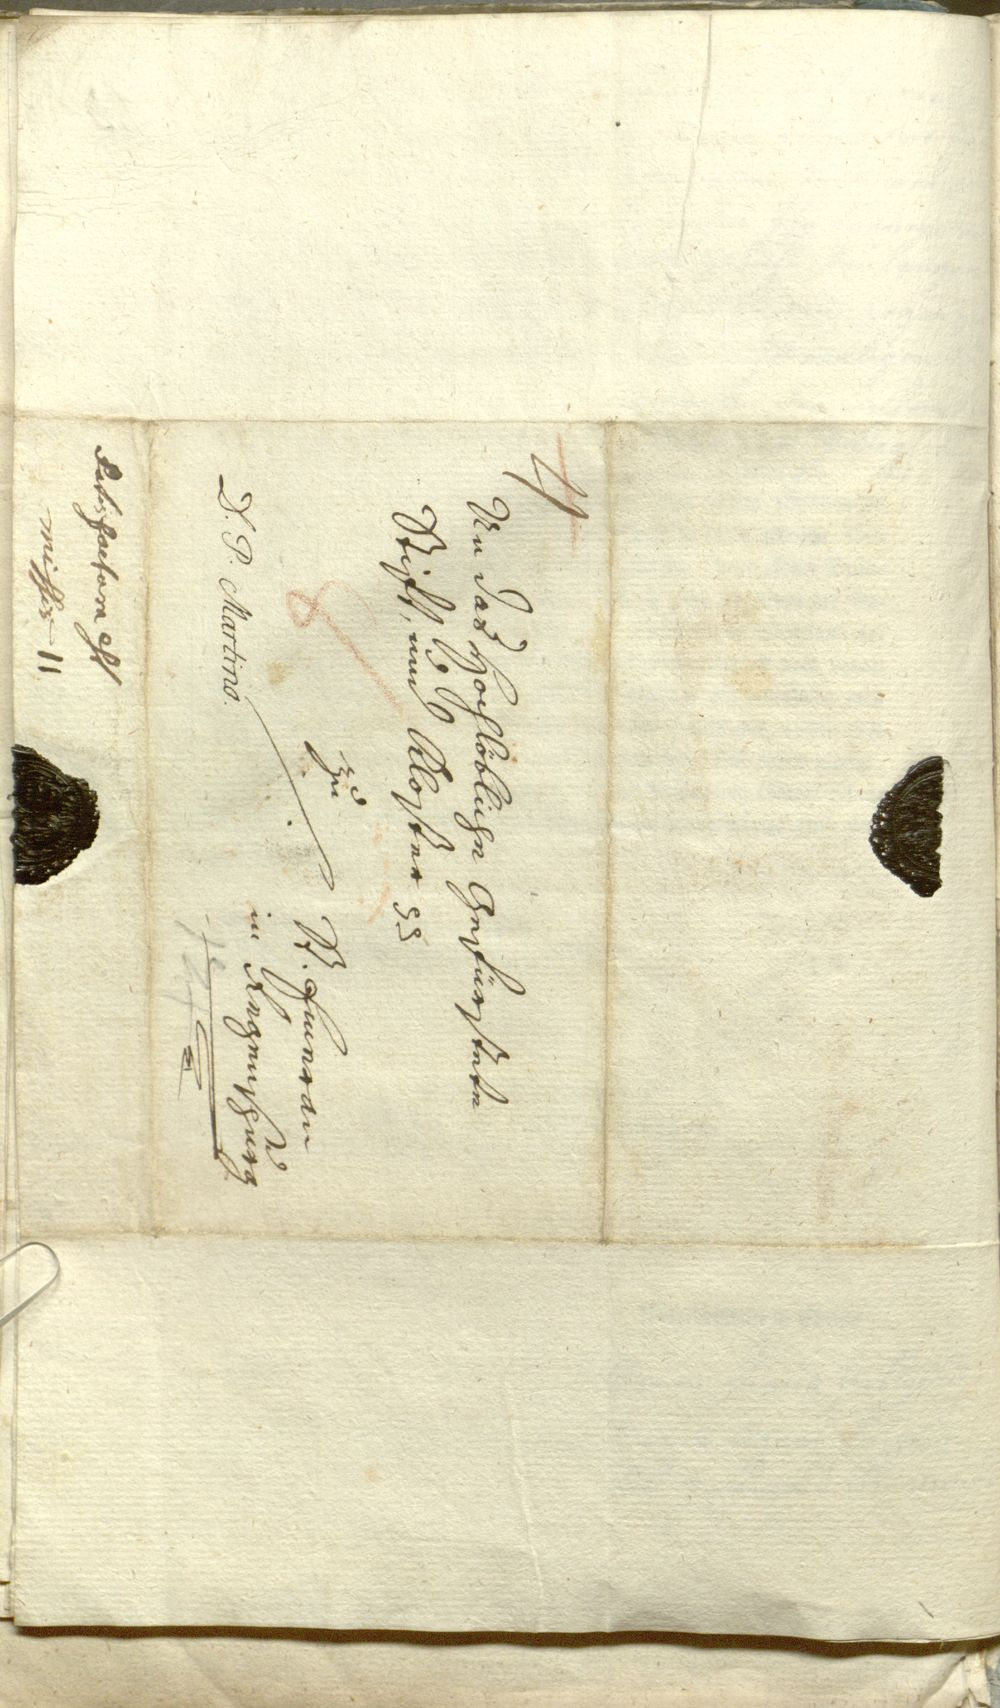 An das Hochlöbliche Gefürstete
Stift, und Kloster
zu
St. Emeram
in Regenspurg
D. P. Martino.
satisfactum est
missis 11